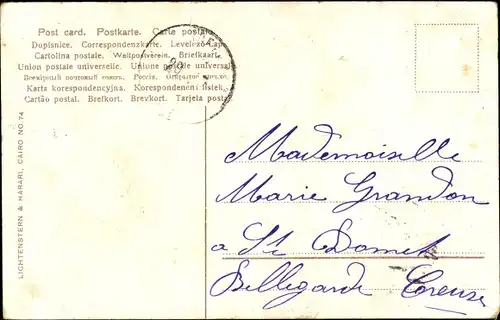 Post card. Postkarte. Carte postale.
Dopisnice. Correspondenzkarte. Levelező-Lap.
Cartolina postale. Weltpostverein. Briefkaart.
Union postale universelle. Unione postale universale.
Всемірный почтовый союзъ. Россія. Открытое письмо.
Karta korespondencyjna. Korespondenční lístek.
Cartão postal. Brefkort. Brevkort. Tarjeta postal.
29
LICHTENSTERN & HARARI, CAIRO NO. 74
Mademoiselle
Marie Grandon
a St Domet
Bellegarde Creuse